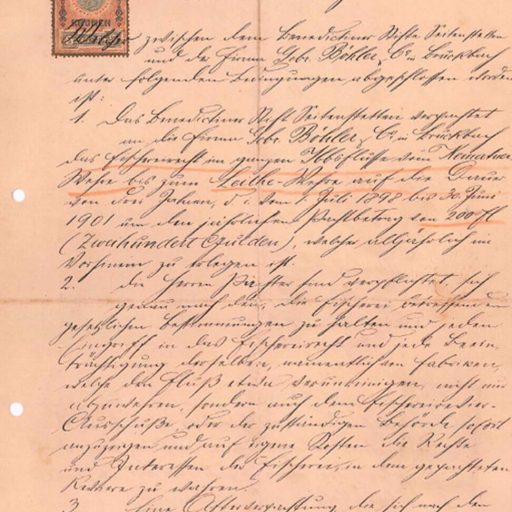 KRONEN
welcher zwischen dem Benediktiner Stifte Seitenstetten
und der Firma Gebr. Böhler & Co in Bruckbach
unter folgenden Bedingungen abgeschlossen worden
ist:
1. Das Benedictiner Stift Seitenstetten verpachtet
an die Firma Gebr. Böhler & Co in Bruckbach
das Fischereirecht im ganzen Ybbsflusse vom
Wehre bis zum Leithe-Wehre auf die Dauer
von drei Jahren, d. i. vom 1. Juli 1898 bis 30. Juni
1901 um den jährlichen Pachtbetrag von 200 fl
(Zweihundert Gulden), welcher alljährlich im
Vorhinein zu erlegen ist.
2. Die Herren Pächter sind verpflichtet, sich
genau nach den, die Fischerei betreffenden
gesetzlichen Bestimmungen zu halten und jeden
Eingriff in das Fischereirecht und jede Beein-
trächtigung derselben, namentlich von Fabriken,
welche den Fluß etwa verunreinigen, nicht nur
abzuwehren, sondern auch dem Fischereirevier-
Ausschuße oder der zuständigen Behörde sofort
anzuzeigen und auf eigene Kosten die Rechte
und Interessen der Fischerei in dem gepachteten
Reviere zu wahren.
3. Eine Afterverpachtung, die sich nach den